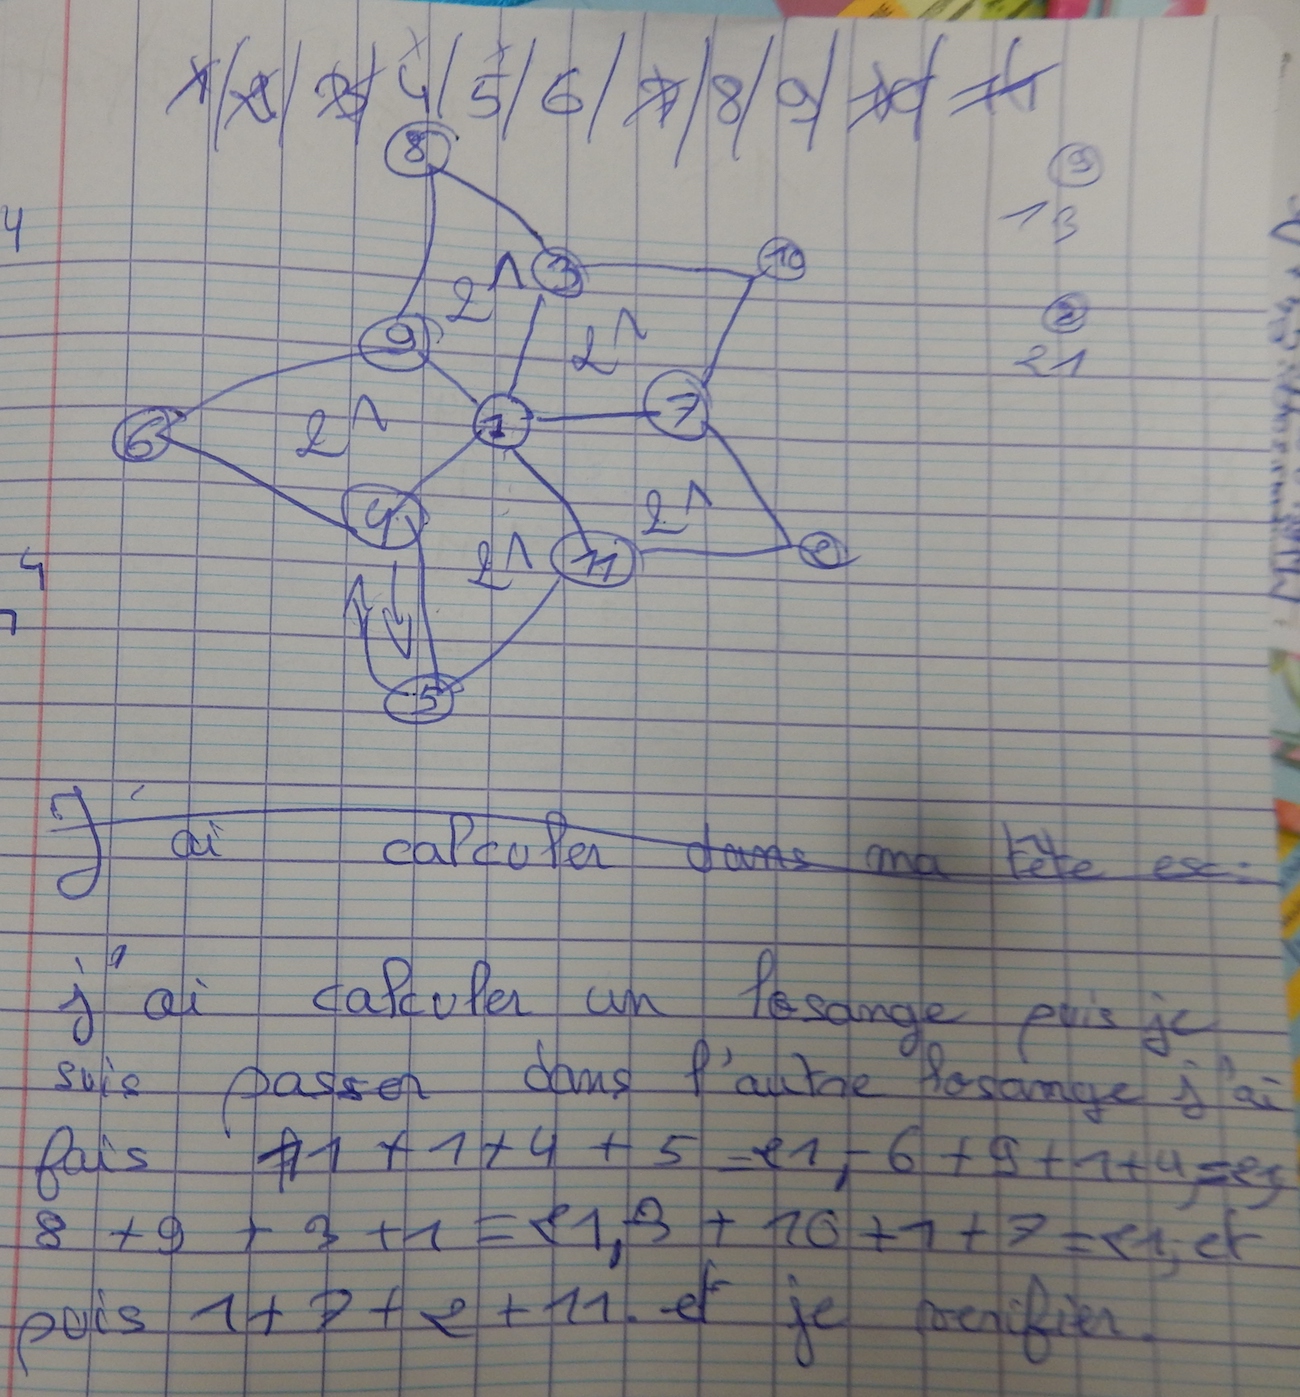 1/2/3/4/5/6/7/8/9/10/11
8
3
10
9
13
21
21
2
9
21
7
1
21
6
21
21
4
11
2
21
5
4
4
J'ai calculer dans ma tête ex:
j'ai calculer un losange puis je
suis passer dans l'autre losange j'ai
fais 11 + 1 + 4 + 5 = 21, 6 + 9 + 1 + 4 = 21,
8 + 9 + 3 + 1 = 21, 3 + 10 + 1 + 7 = 21, et
puis 1 + 7 + 2 + 11. et je verifier.